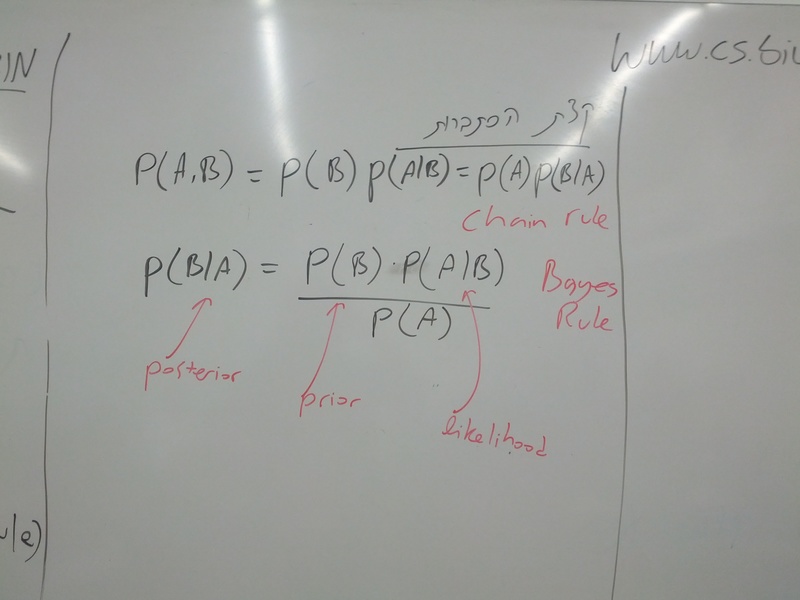 www.cs.biu
קצת הסתברות
P(A,B) = P(B) P(A|B) = P(A) P(B|A)
Chain rule
P(B|A) = P(B) · P(A|B)
P(A)
Bayes
Rule
posterior
prior
likelihood